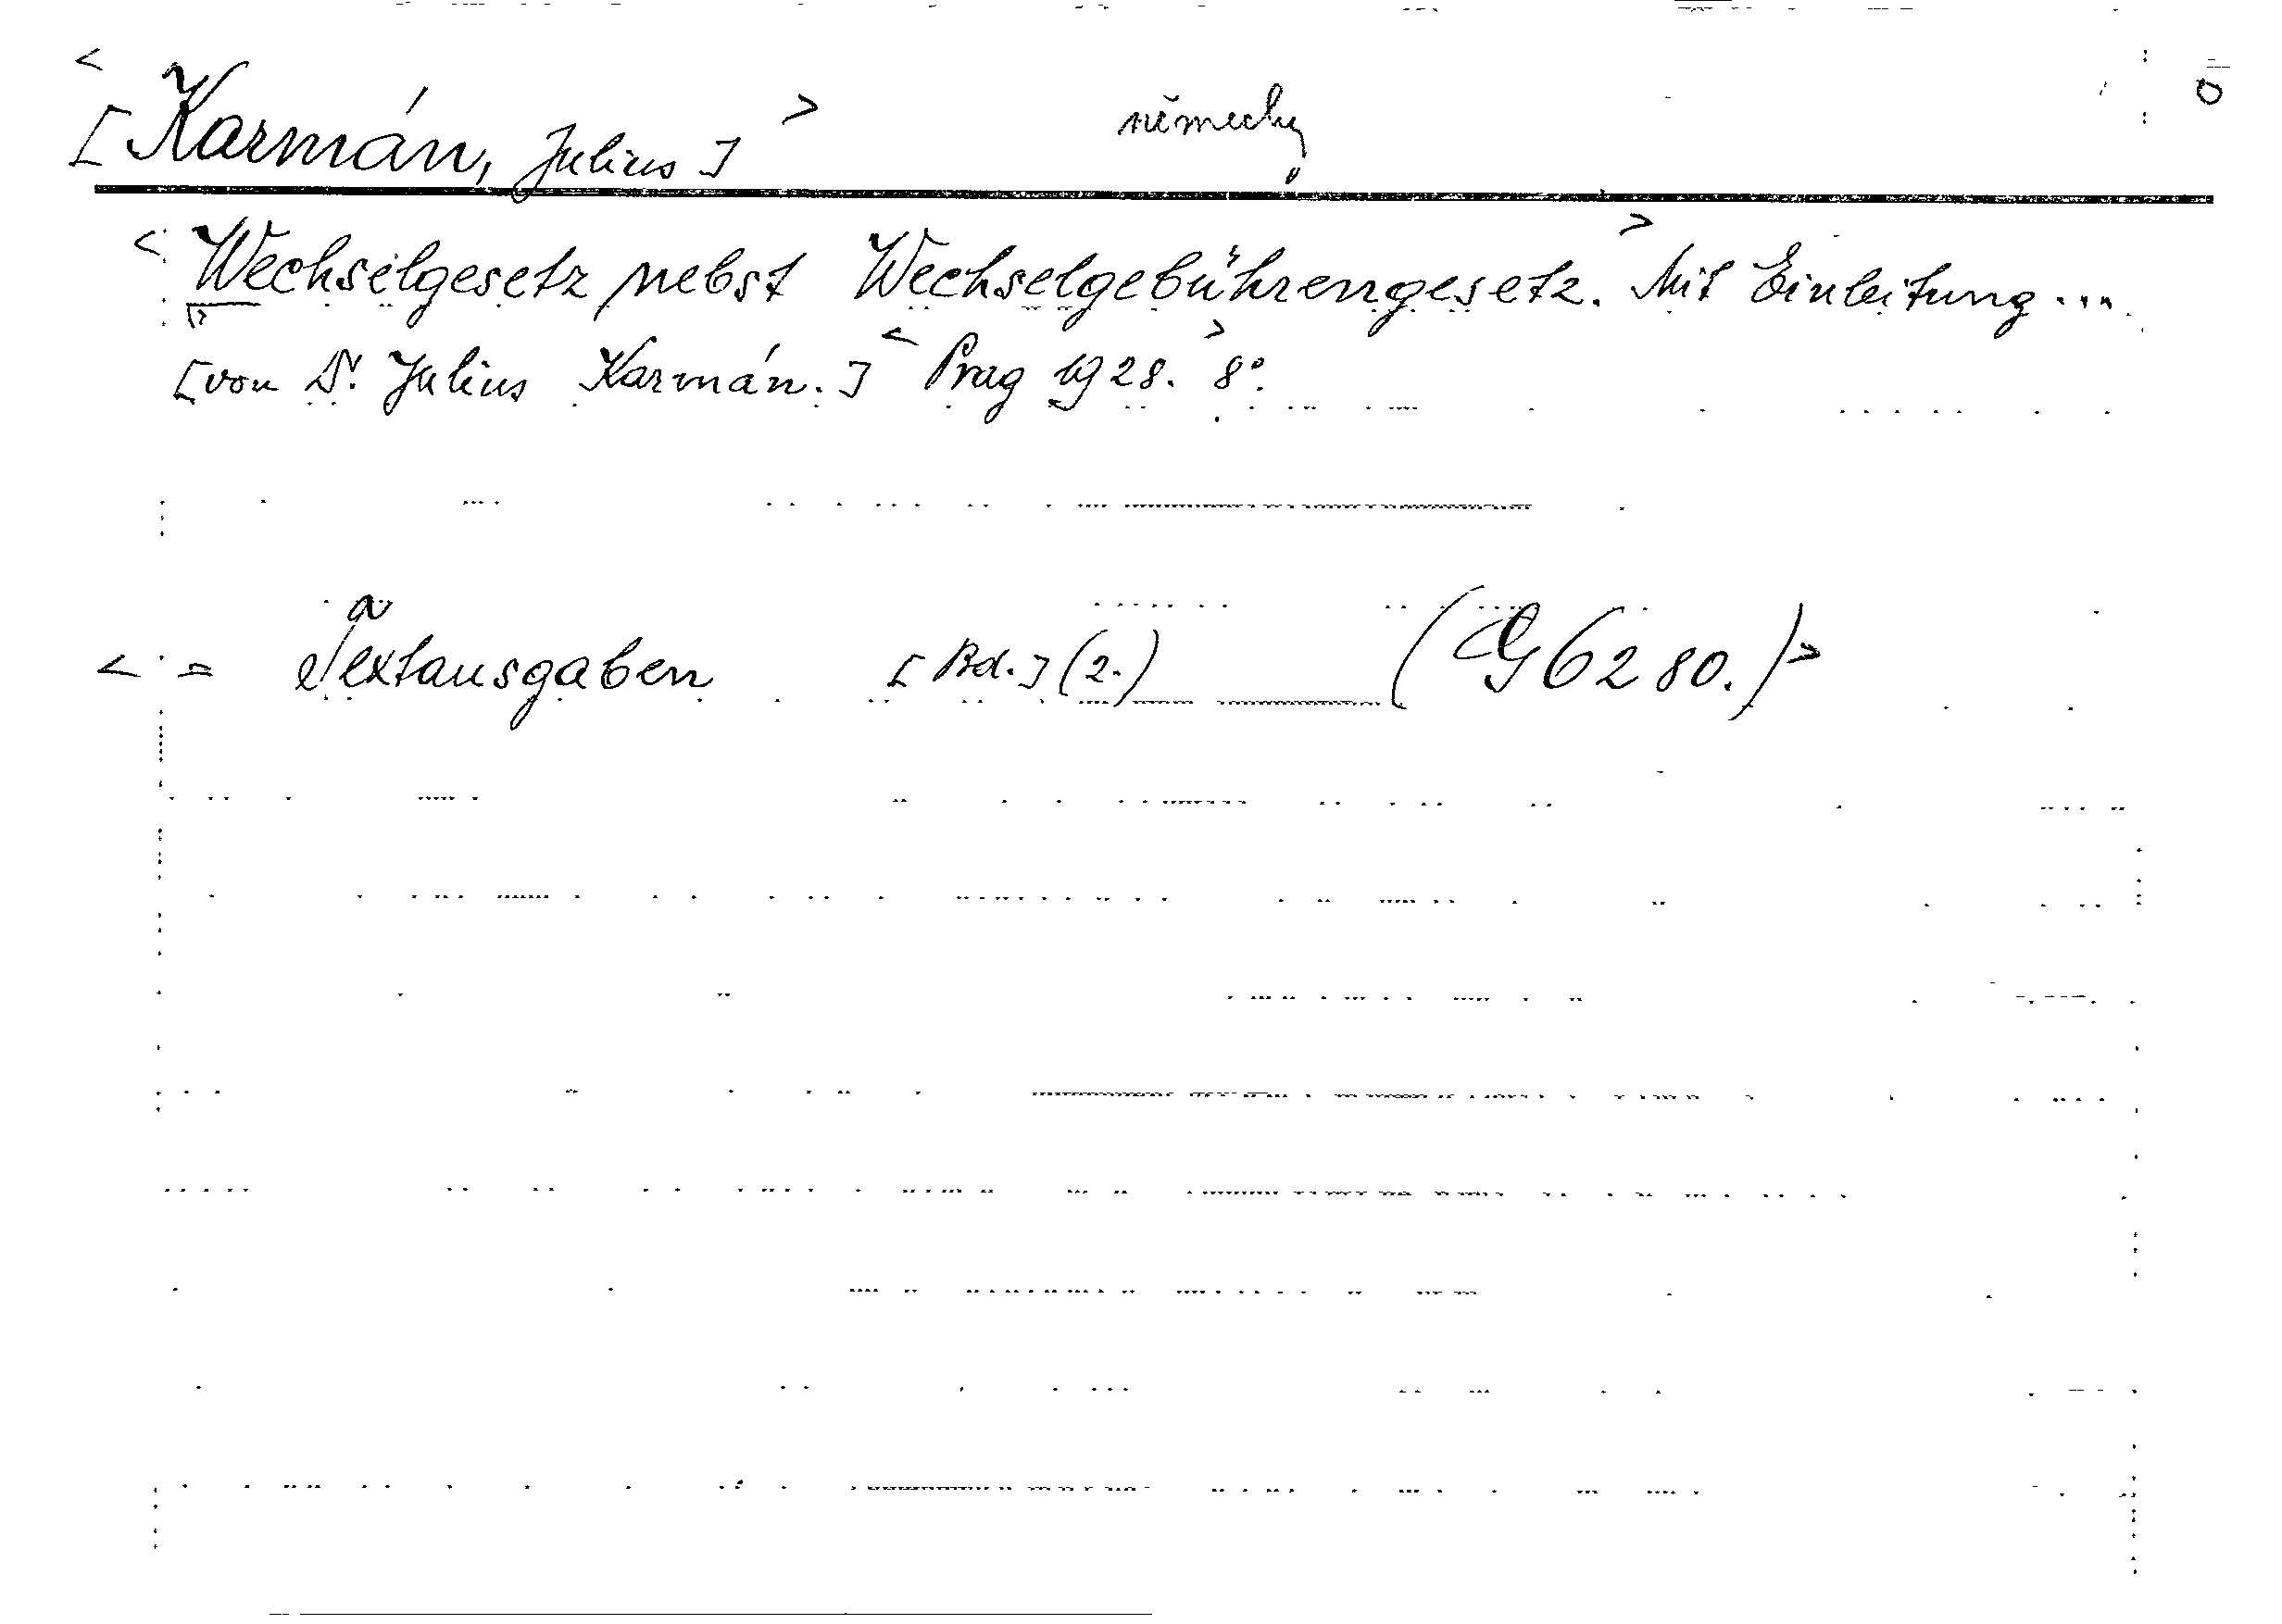 < [Karmán, Julius] > německy 0
< Wechselgesetz nebst Wechselgebührengesetz. > Mit Einleitung ...
[von Dr. Julius Karmán.] < Prag 1928. > 8°.
< = Textausgaben [Bd.] (2.) (G 6280.) >